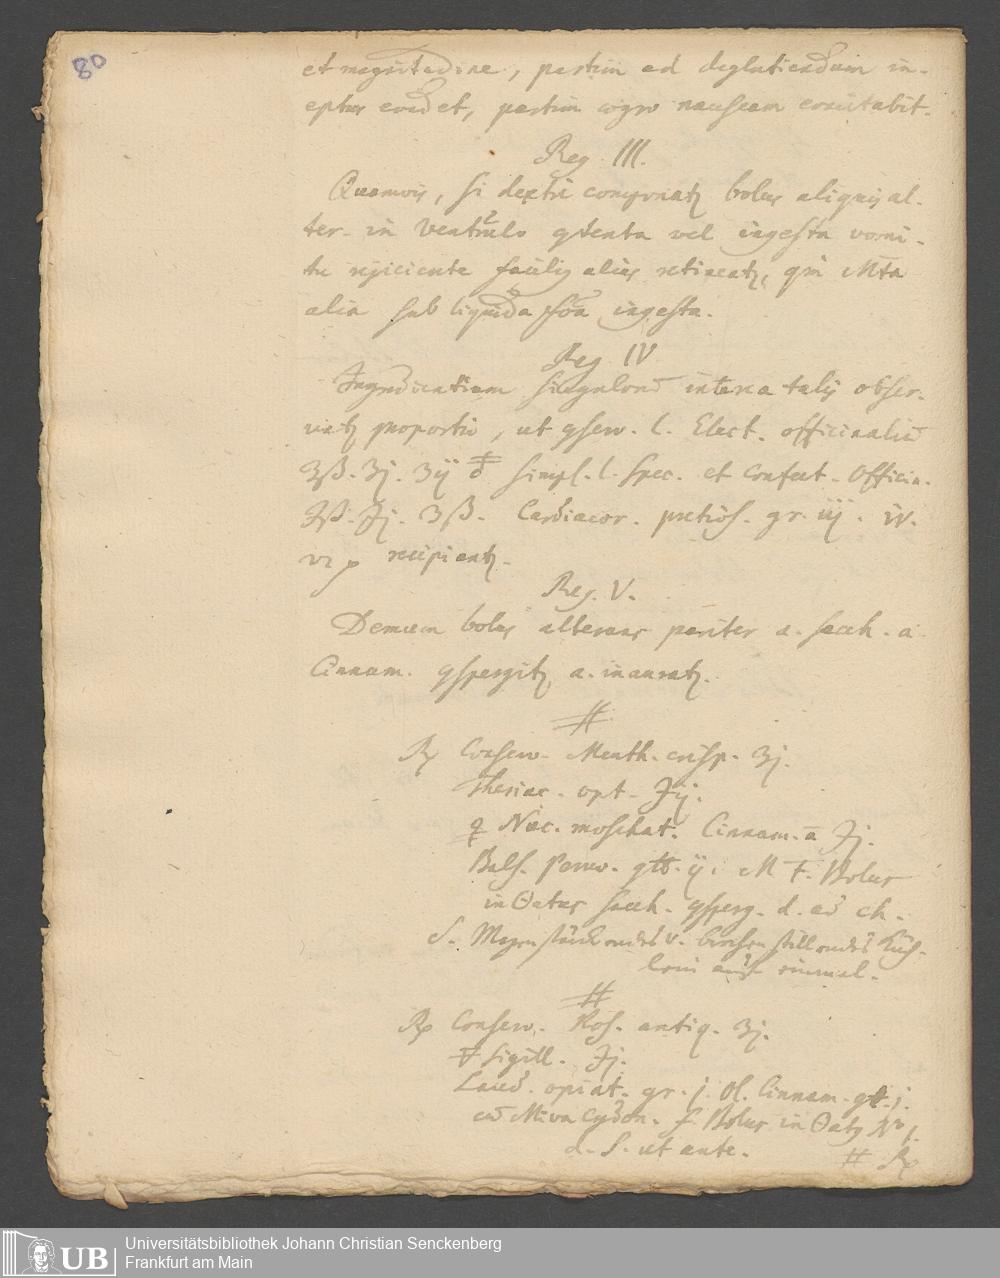 80
et magnitudine, partim ad deglutiendum in-
eptus evadet, partim aegro nauseam excitabit.
Reg. III.
Quamvis, si dextre componatz bolus aliquis al-
ter. in ventriculo contenta vel ingesta vomi-
tu rejiciente facilig alias retineatz, qm Mta
alia sub liquida forma ingesta.
Reg. IV
Ingredientium singulorum interea talis obser-
vatz proportio, ut conserv. l. Elect. officinaliu
ʒß. ʒj. ʒij simpl. l. Spec. et Confect. Officin.
℈ß. ℈j. ʒß. Cardiacor. pretios. gr. iij. iv.
vi recipiantz.
Reg. V.
Demum bolus alternas pariter a. sacch. a
Cinnam. conspergitz a. inauratz.
#
℞ Conserv. Menth. crisp. ʒj.
Theriac. opt. ℈ij.
Nuc. moschat. Cinnam. a ℈j.
Bals. Peruv. gtt. ij. M F. Bolus
in Θatus sacch. consperg. d. ad ch.
S. Magen stärckendes u. brechen stillendes Küch-
lein auf einmal.
#
℞ Conserv. Ros. antiq. ʒj.
sigill. ℈j.
Laud. opiat. gr. j. Ol. Cinnam. gtt. j.
cu Miva Cydon. f. Bolus in Θatz No j.
d. S. ut ante.
# ℞
UB
Universitätsbibliothek Johann Christian Senckenberg
Frankfurt am Main